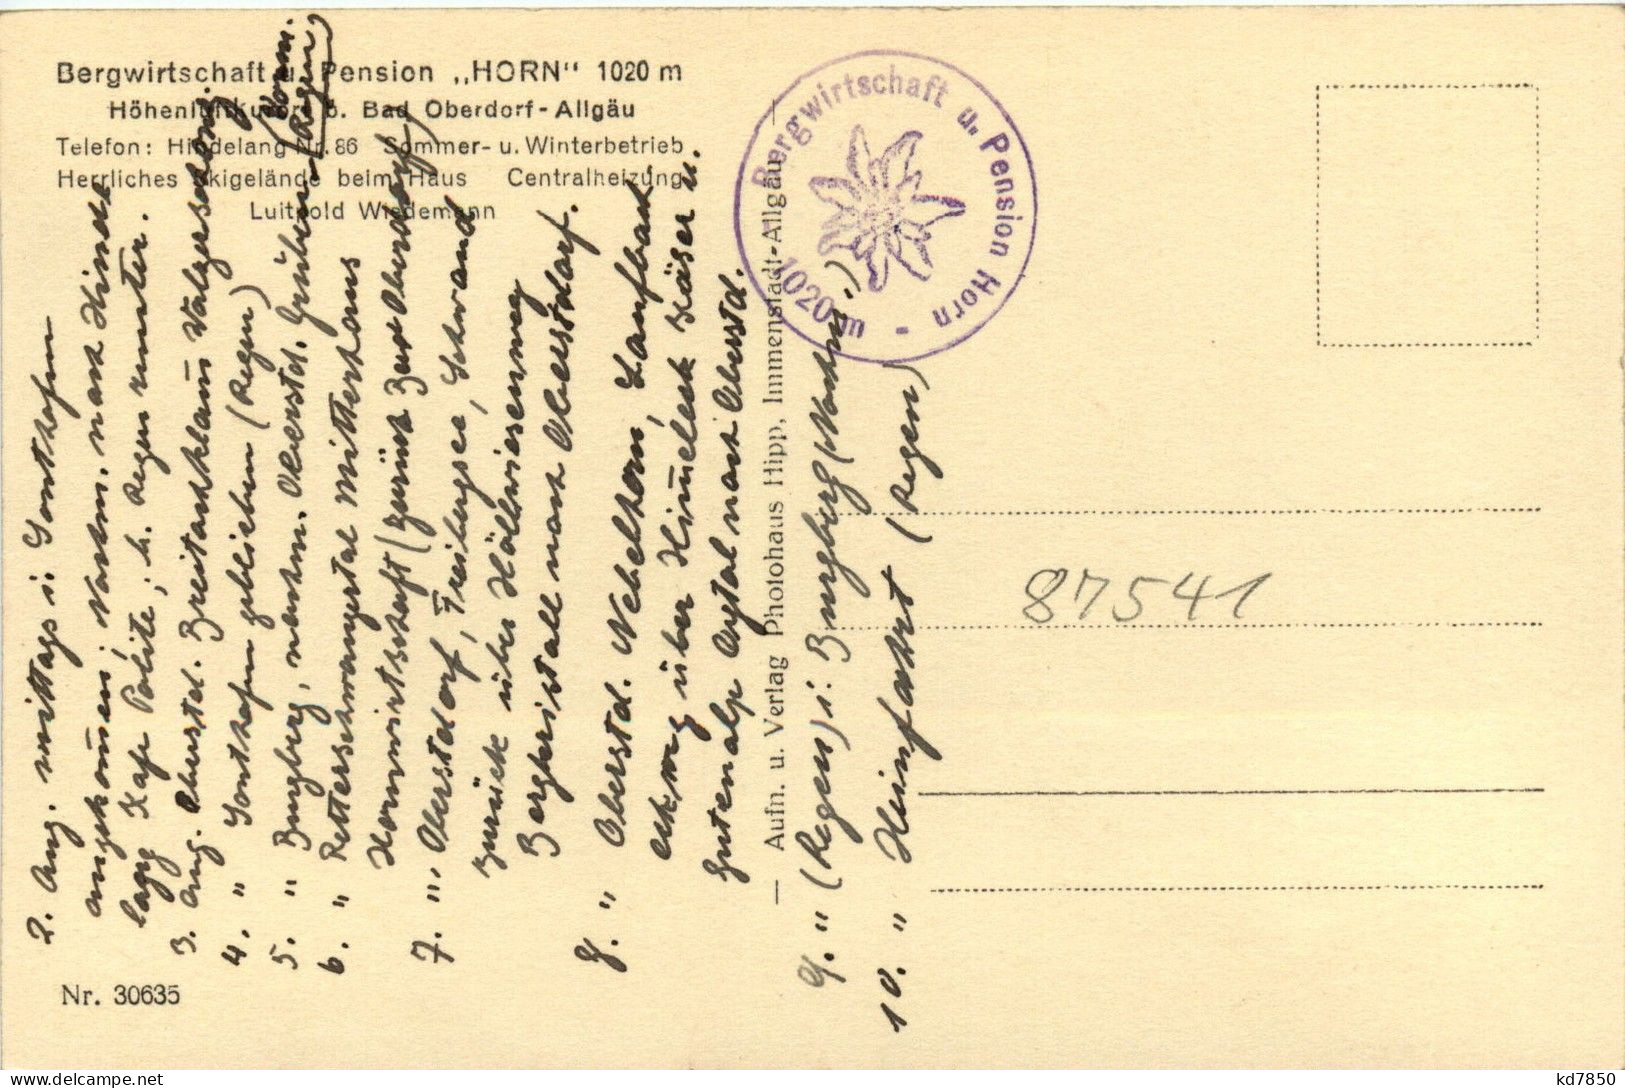 Bergwirtschaft u. Pension „HORN“ 1020 m
Höhenluftkurort b. Bad Oberdorf - Allgäu
Telefon: Hindelang Nr. 86 Sommer- u. Winterbetrieb
Herrliches Skigelände beim Haus Centralheizung
Luitpold Wiedemann
Bergwirtschaft u. Pension Horn -
1020 m
2. Aug. mittags i. Sonthofen
angekom̄en; Nachm. nach Hinde
lang Kap. Polite; h. Regen runter.
3. Aug. Oberstd. Breitachklam̄ Walserschanz
4. " Sonthofen geblieben (Regen) (Vorm. Regen)
5. " Burgberg, nachm. Oberstd. Grüben
6. " Retterschwangertal Mitterhaus
Hornwirtschaft (zurück Bad Oberdorf)
7. " Oberstdorf, Freibergsee, Schwand
zurück über Höllwiesenweg
Bergkristall nach Oberstdorf.
8. " Oberstd. Nebelhorn, Laufbach
eckweg über Him̄eleck Käser u.
Gutenalp Oytal nach Oberstd.
9. " (Regen) i. Burgberg (Nachm.)
10. " Heimfahrt (Regen)
— Aufn. u. Verlag Photohaus Hipp, Immenstadt-Allgäu —
87541
Nr. 30635
kd7850